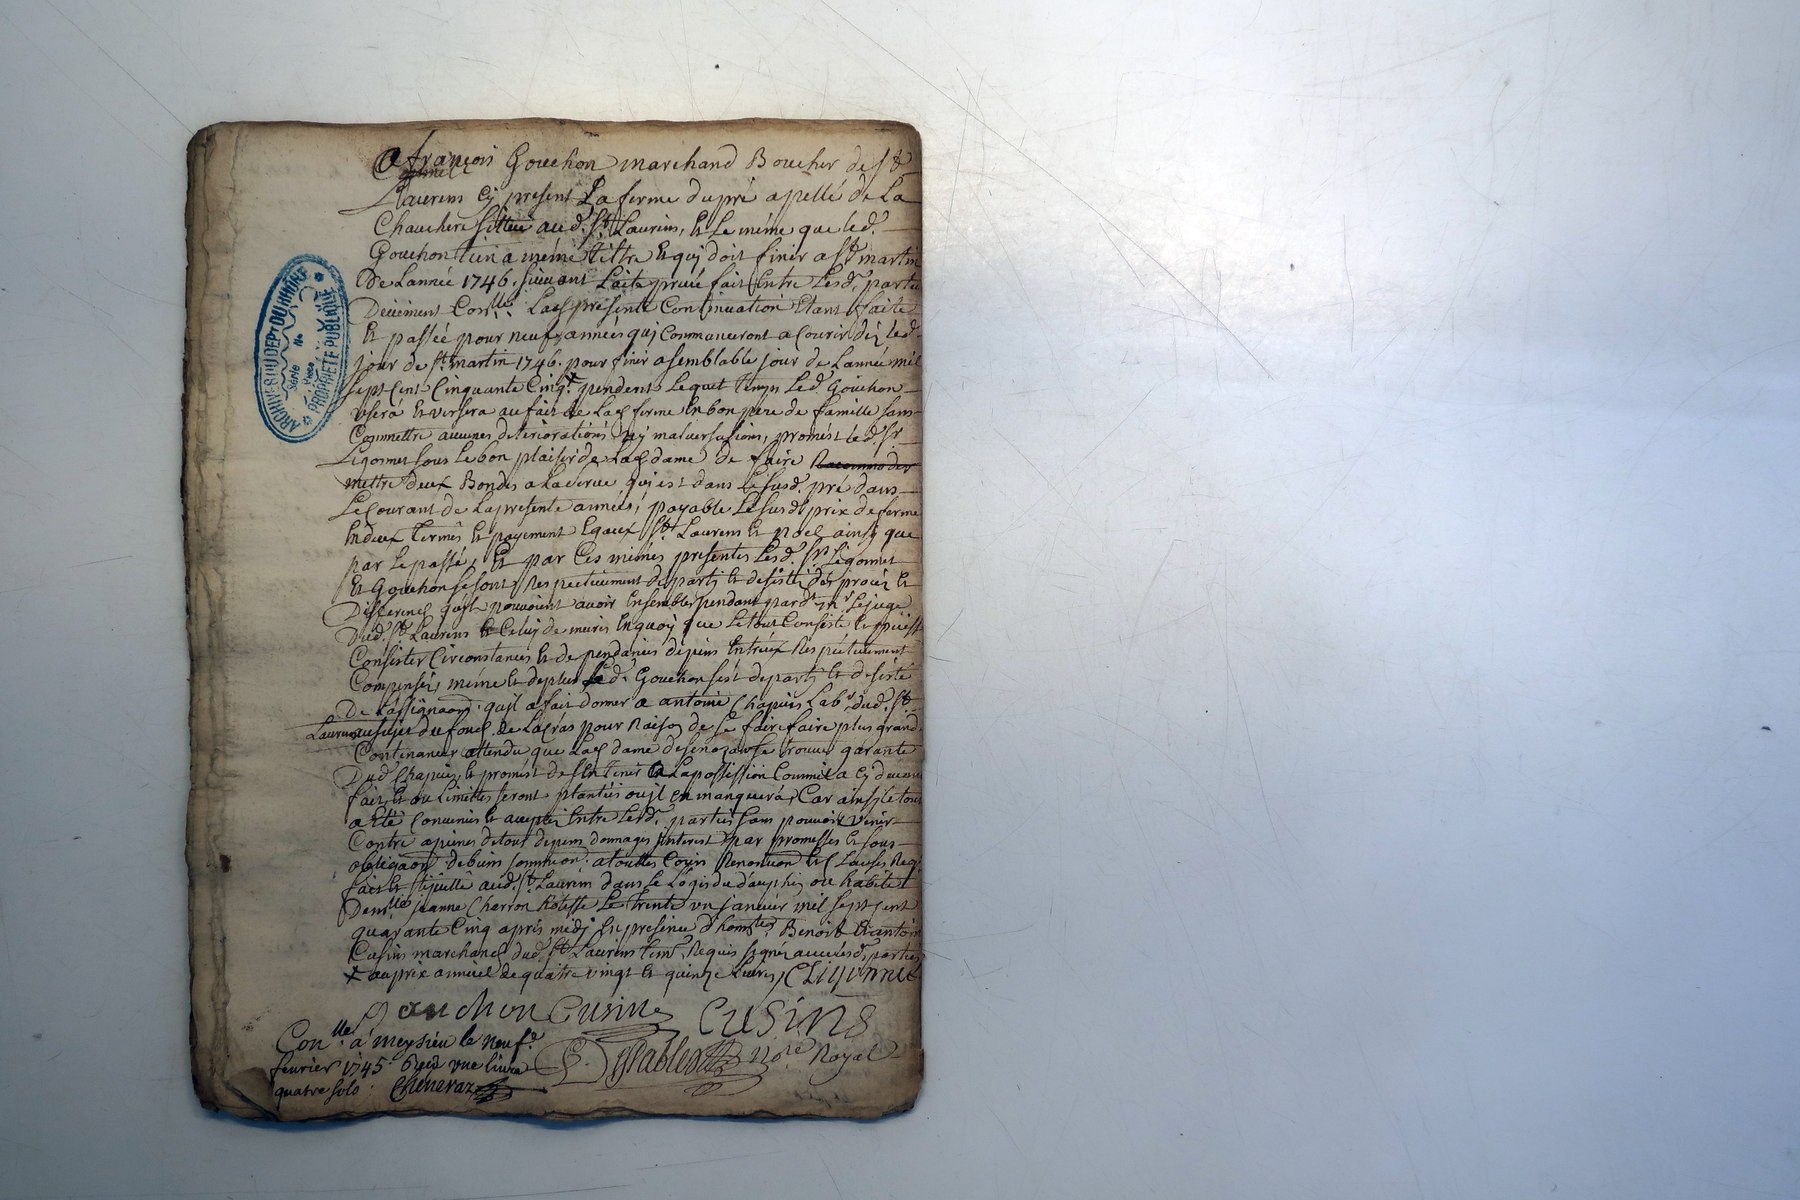 a françois Gouchon marchand Boucher de St
Laurens Cy present La ferme dupré apellé de La
Chauchere sittué aud. St Laurens, Et Le méme que led.
Gouchon tien a méme tittre Et quj doit finir a St martin
De Lannée 1746. suivant Lacte privée fait Entre Lesd. parties
Deüement Con.lle Lad présente Continuation Etant faite
Et passée pour neuf années quj Commanceront a Courir déz led.
jour de St martin 1746. pour finir a semblable jour de Lannée mil
sept Cent Cinquante Cinq, pendent Lequel temps Led Gouchon
usera Et versera au fait de Lad ferme En bon pere de famille sans
Commettre aucunes déteriorations ny malversations, promést led. Sr
Ligonnet sous Le bon plaisir de Lad dame de faire Racommoder
mettre deux Bondes a La serue quj est dans Le susd. pré dans
Le Courant de La presente année, payable Le susd prix de ferme
En deux termes Et payement Egaux St Laurens Et noel ainsy que
par Le passé, Et par Ces mémes presentes Lesd. Srs Ligonnet
Et Gouchon se sont Respectivement departi Et desisté des procéz Et
Differends quils pouvoient avoir Ensembles pendant pard. mr Le juge
Dud. St Laurens Et Celuy de meiris En quoy que Le tout Consiste Et puisse
Consister Circonstances Et dependances dépens Entreux Respectivement
Compensés, méme Et deplus Led. Gouchon sést departi Et désisté
De Lassignaon. quil a fait donner a antoine Chapuis Labr. dud. St
Laurens au sujet du fond de La Cras pour Raison de se faire faire plus grand
Contenance attendu que Lad dame de senozan se trouve garante
Dud. Chapuis, Et promést de sen tenir a La possession Comme a Cy devant
fait, Et ou Limittes seront plantées ou il en manquera, Car ainsy Le tout
a Eté Convenu Et accepté Entre Lesd. parties sans pouvoir venir
Contre a peines de tous depens domages Interest par promesses Et sous
obligaon. de biens soumission. a touttes Cours Renontion Et Clauses Req.
fait Et stipullé aud. St Laurens dans Le Logis du dauphin ou habite
Dem.lle jeanne Charron hotesse Le trente un janvier mil sept cent
quarante Cinq aprés midj En presence d'hom.tes Benoit Et antoine
Cusins marchand dud. St Laurens tem. Requis signés avec lesd. parties
+ au prix annuel de quatre vingt Et quinze Livres, CLigonnet
Gauchon Cusin Cusins
Con.lle à meysieu le neuf.e
fevrier 1745. Reçu une livre
quatre sols. Cheneraz
No.re Royal
ARCHIVES DU DEPT DU RHÔNE
Série
No
Pièce
PROPRIÉTÉ PUBLIQUE